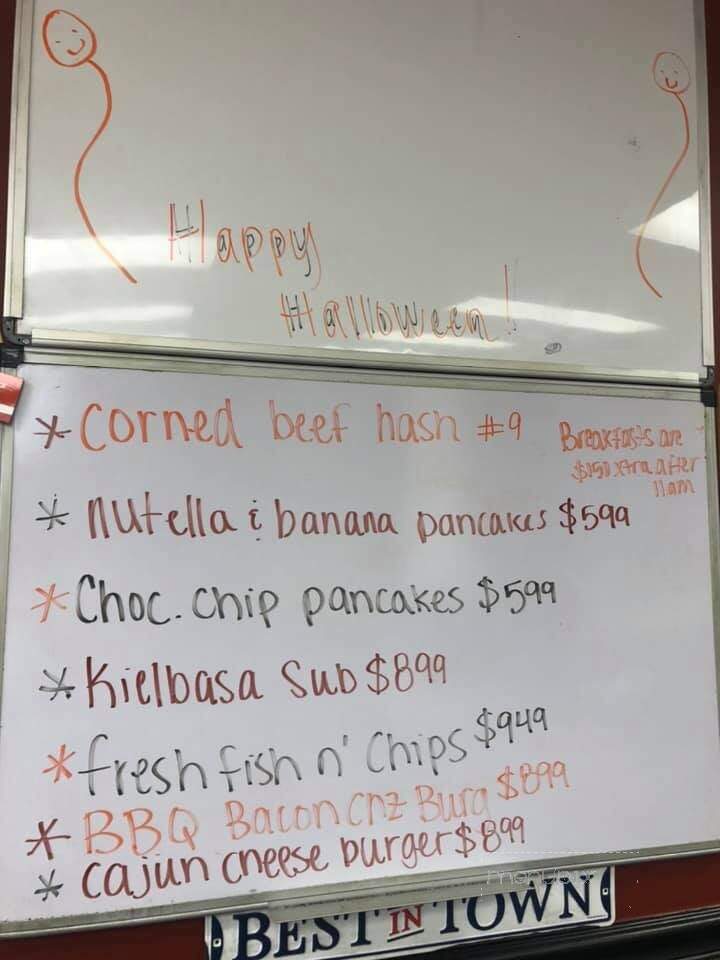 Happy
Halloween!
* Corned beef hash #9
Breakfasts are
$150 xtra after
11am
* nutella & banana pancakes $599
* Choc. chip pancakes $599
* Kielbasa Sub $899
* fresh fish n' Chips $949
* BBQ Bacon Chz Burg $899
* cajun cheese burger $899
menupix
BEST IN TOWN